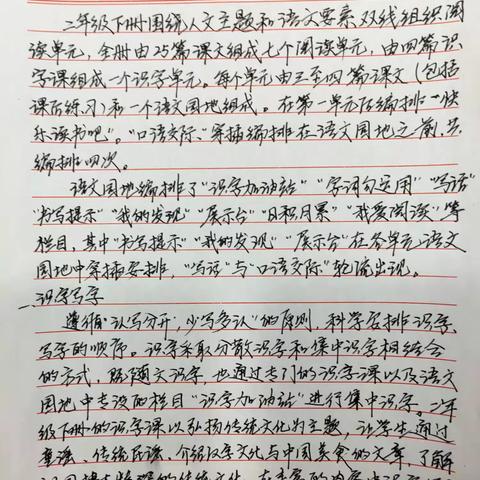 二年级下册围绕人文主题和语文要素双线组织阅
读单元，全册由25篇课文组成七个阅读单元，由四篇识
字课组成一个识字单元。每个单元由三至四篇课文（包括
课后练习）和一个语文园地组成。在第一单元后编排“快
乐读书吧”。“口语交际”穿插编排在语文园地之前，共
编排四次。
语文园地编排了“识字加油站”“字词句运用”“写话”
“书写提示”“我的发现”“展示台”“日积月累”“我爱阅读”等
栏目，其中“书写提示”“我的发现”“展示台”在各单元语文
园地中穿插安排，“写话”与“口语交际”轮流出现。
一识字写字
遵循“认写分开，少写多认”的原则，科学安排识字、
写字的顺序。识字采取分散识字和集中识字相结合
的方式，除随文识字，也通过专门的识字课以及语文
园地中专设的栏目“识字加油站”进行集中识字。二年
级下册的识字课以弘扬传统文化为主题，让学生通过
童谣、传统民谣、介绍汉字文化与中国美食的文章，了解
的传统文化，在丰富的内容中识字